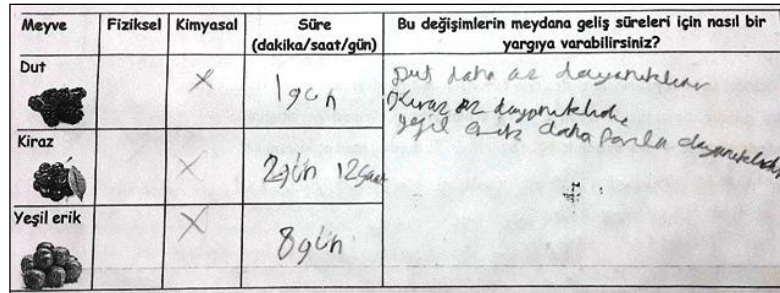 Meyve Fiziksel Kimyasal Süre (dakika/saat/gün) Bu değişimlerin meydana geliş süreleri için nasıl bir yargıya varabilirsiniz?
Dut X 1 gün
Dut daha az dayanıklıdır
Kiraz az dayanıklıdır
yeşil erik daha fazla dayanıklıdır
Kiraz X 2 gün 12 saat
Yeşil erik X 8 gün